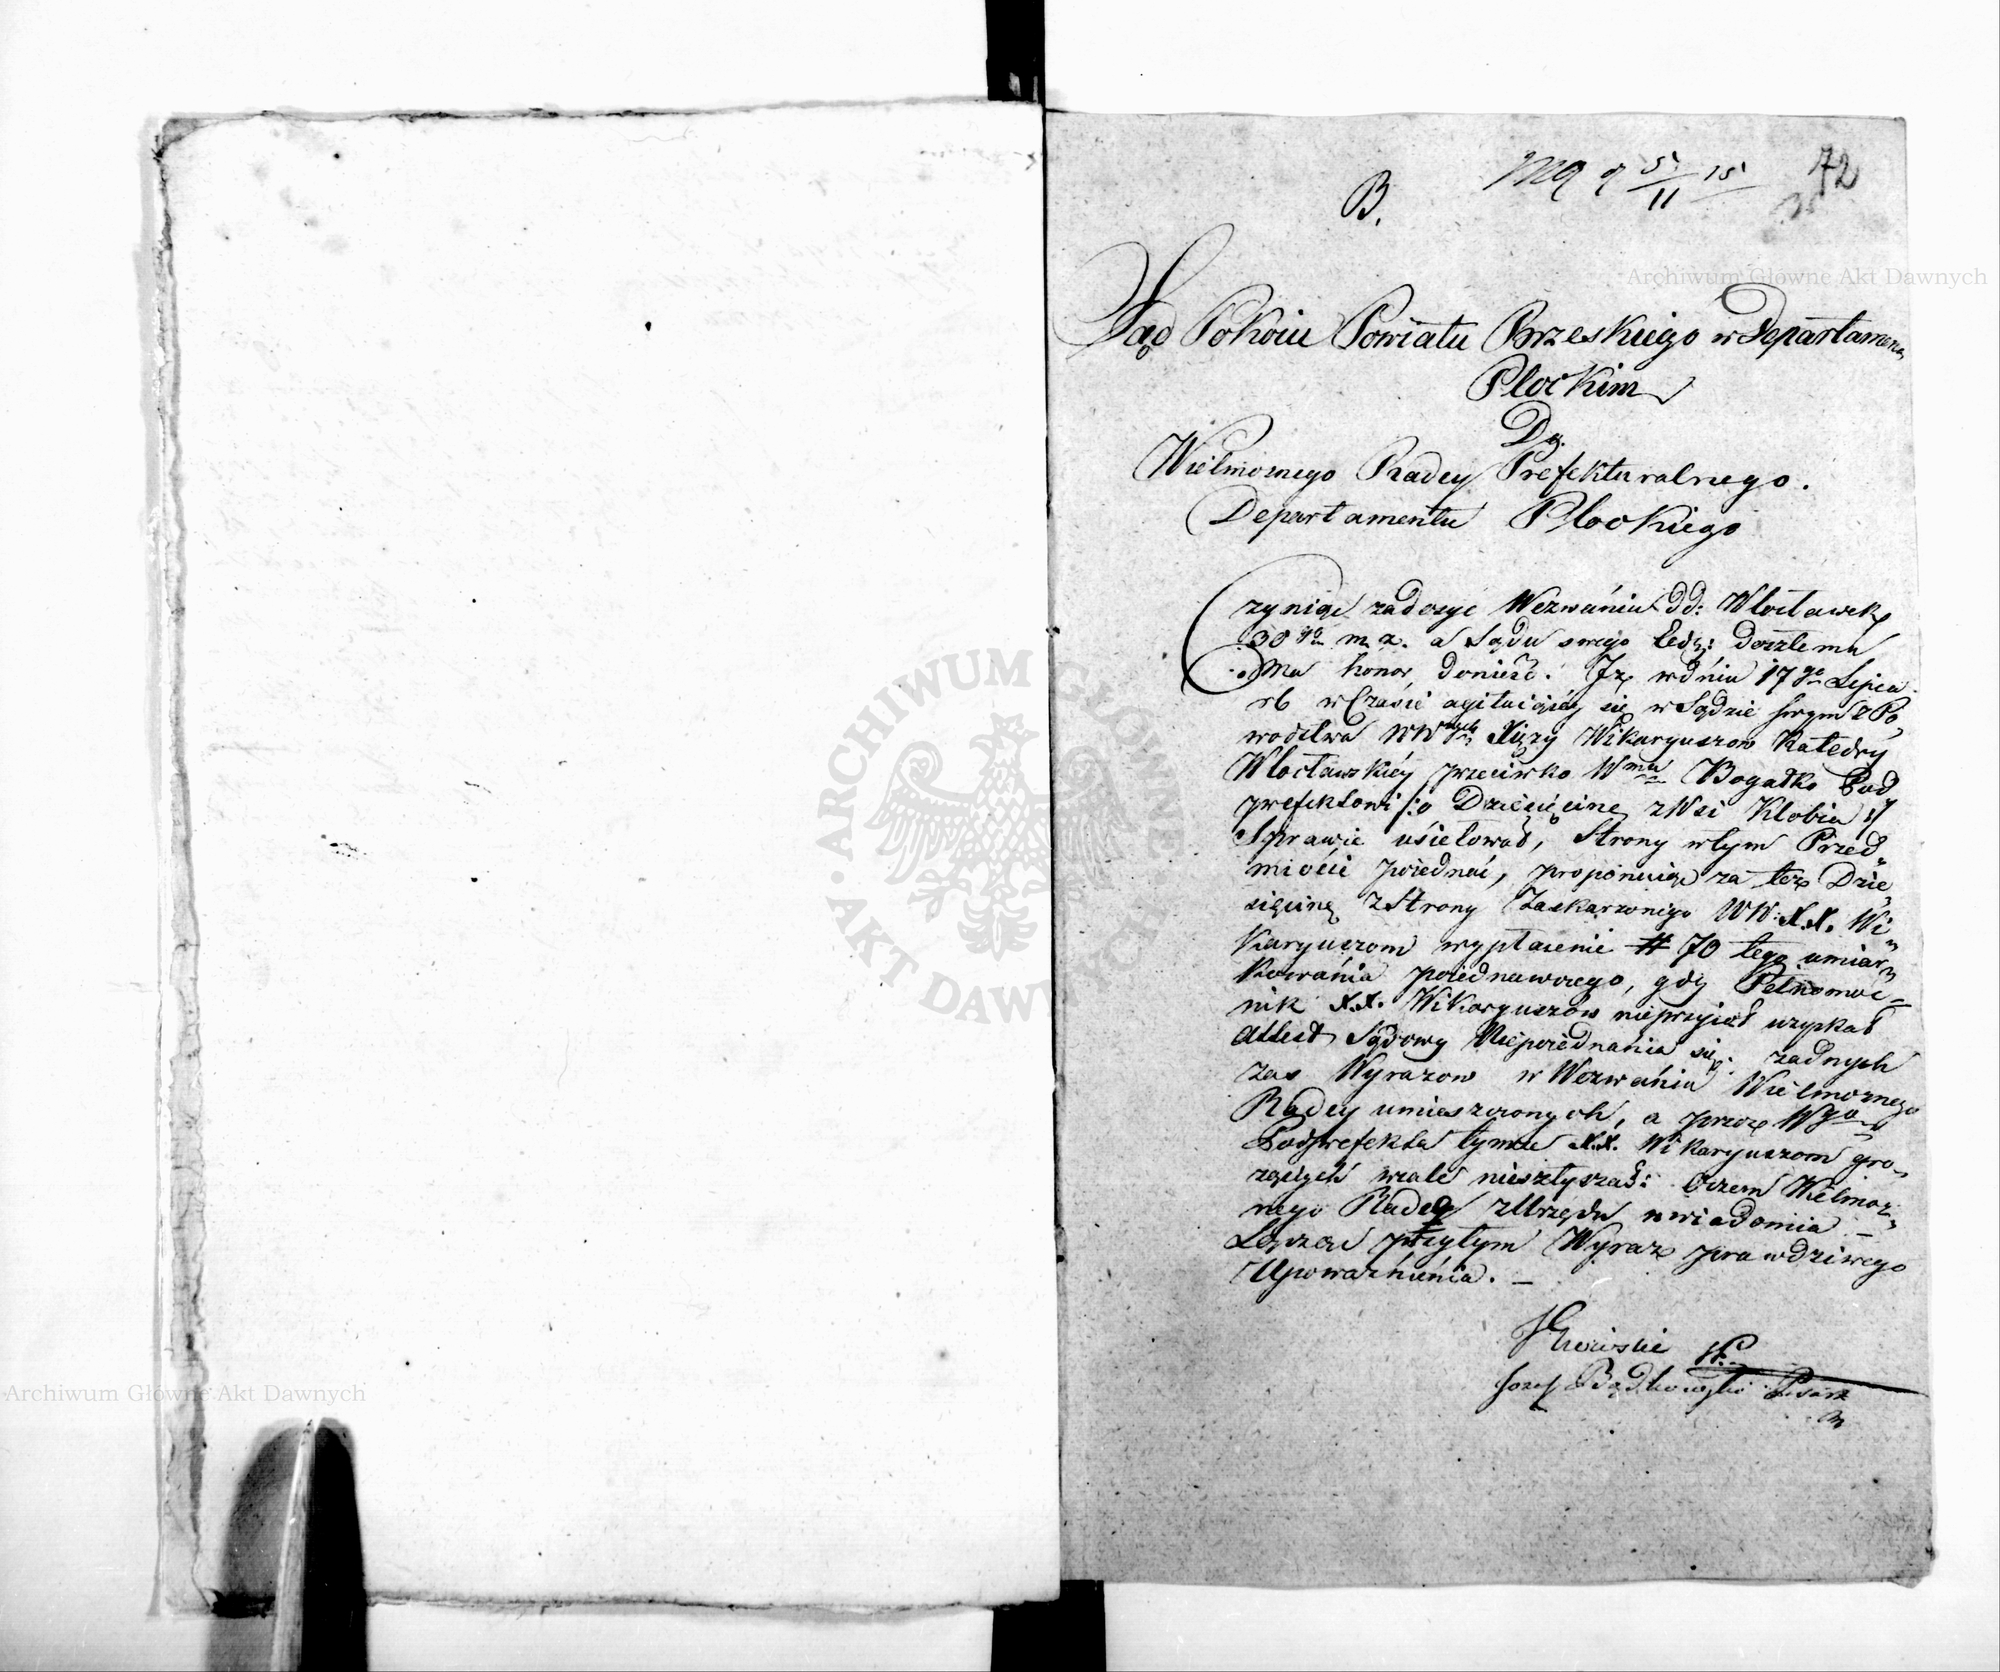 72
B.
Sąd Pokoiu Powiatu Brzeskiego w Departamen
Płockim
Do
Wielmożnego Radcy Prefekturalnego.
Departamentu Płockiego
Czyniąc zadosyć Wezwaniu dd: Włocławek
30go m z. a Sądu swego dorzłemu
Ma honor donieść. Iż w dniu 17go Lipca
rb w Czasie agituiącéy się w Sądzie swym z Po
wodztwa WWnych Xięzy Wikaryuszow Katedry
Włocławskiéy przeciwko Wmu Bogatko Pod
prefektowi /:o Dziesięcinę z Wsi Kłobia :/
Sprawie usiełował, Strony w tym Przed
miocie poiednać, proponuiąc za też Dzie
sięcinę z Strony Zaskarzonego WW. XX. Wi
Karyuszom wypłacenie # 70 tego umiar
kowania poiednawczego, gdy Pełnomoc
nik XX. Wikaryuszow nieprzyiął uzyskał
Attest Sądowy Niepoiednania się. zadnych
zas Wyrazow w Wezwaniu Wielmoznego
Radcy umieszczonych, a przez Wgo
Podprefekta tymże XX. Wikaryuszom gro
zących wcale niesztyszał: Oczem Wielmoz
nego Radcę z Urzędu uwiadomia –
Łącząc przytym Wyraz prawdziwego
Upoważnienia. –
Jozef Bądkowski Pisarz
Archiwum Główne Akt Dawnych
Archiwum Główne Akt Dawnych
ARCHIWUM GŁÓWNE AKT DAWNYCH